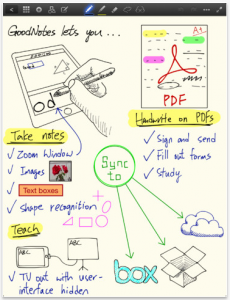 GoodNotes lets you ...
A+
PDF
Take notes
✓ Zoom Window
✓ Images
✓ Text boxes
✓ shape recognition
Handwrite on PDFs
✓ Sign and send
✓ Fill out forms
✓ Study
Sync
to
Teach
ABC
ABC
✓ TV out with user-
interface hidden
box